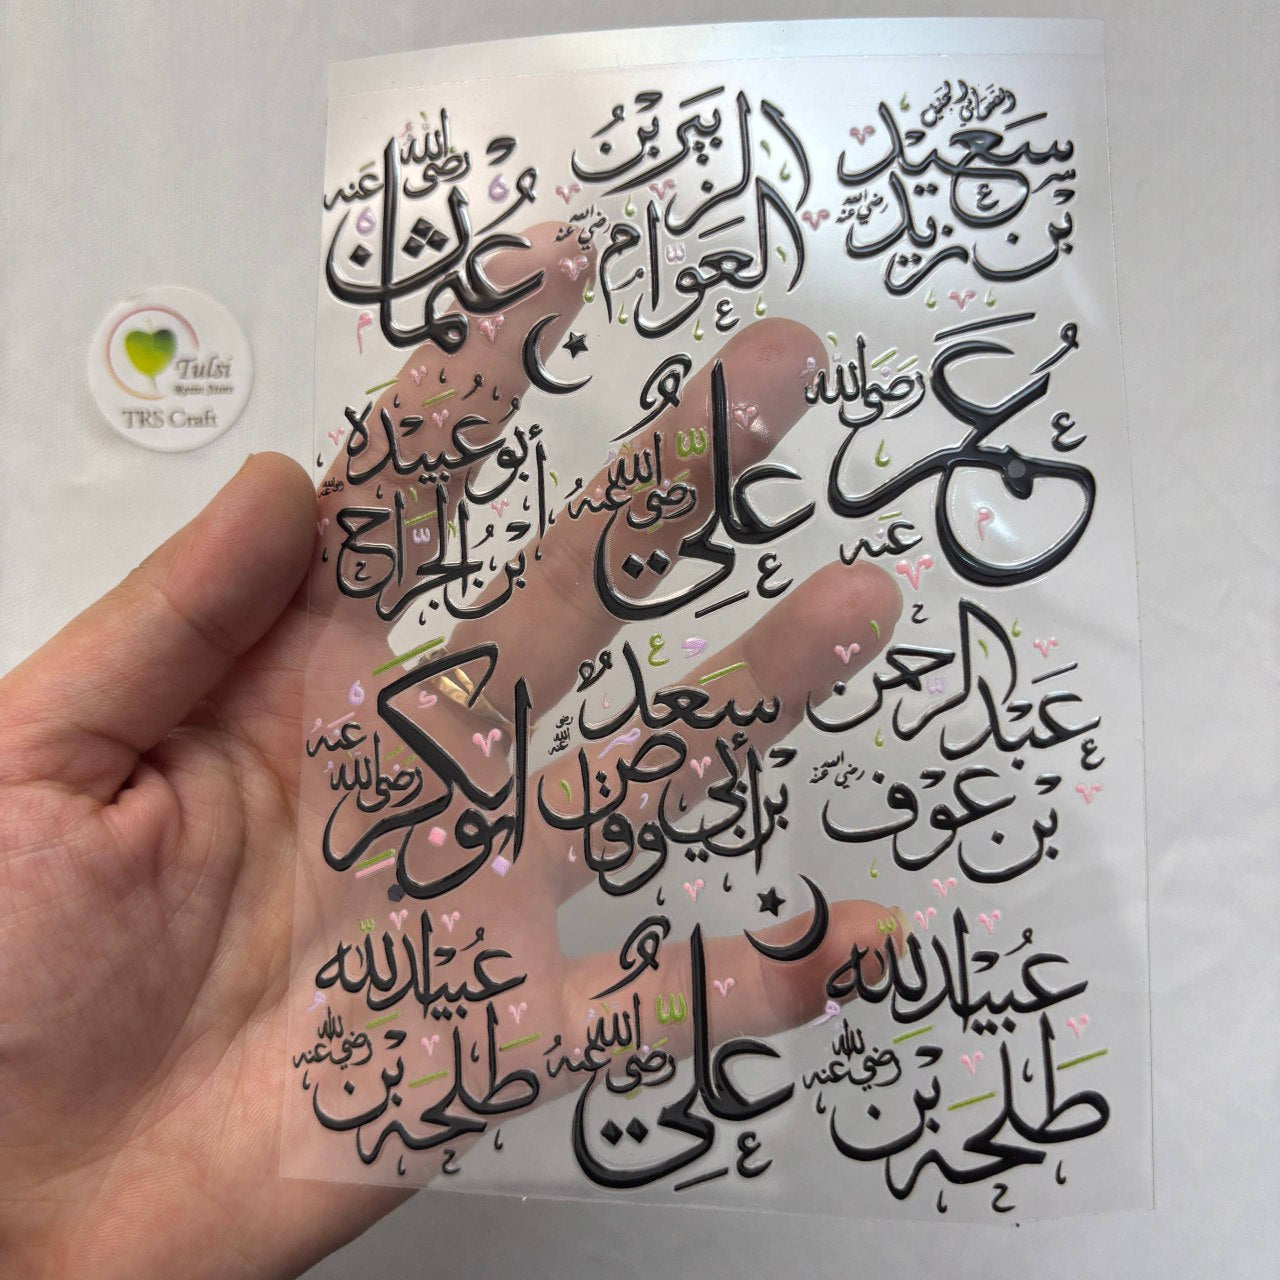 الصحابي الجليل
سعيد
بن زيد
رضي الله عنه
الزبير بن
العوام
رضي الله عنه
عثمان
رضي الله عنه
عمر
رضي الله عنه
علي
رضي الله عنه
أبو عبيده
ابن الجراح
رضي الله عنه
عبد الرحمن
بن عوف
رضي الله عنه
سعد
بن أبي وقاص
رضي الله عنه
ابو بكر
رضي الله عنه
عبيد الله
بن طلحه
رضي الله عنه
علي
رضي الله عنه
عبيد الله
بن طلحه
رضي الله عنه
Tulsi
Resin Store
TRS Craft